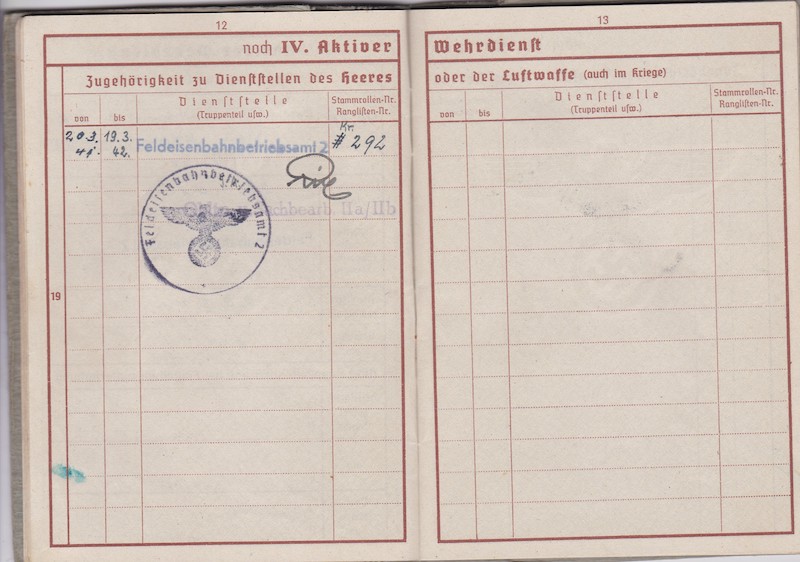 12
noch IV. Aktiver
Zugehörigkeit zu Dienststellen des Heeres
von
bis
Dienststelle
(Truppenteil usw.)
Stammrollen-Nr.
Ranglisten-Nr.
20.3. 41.
19.3. 42.
Feldeisenbahnbetriebsamt 2
Kr.
# 292
Feldeisenbahnbetriebsamt 2
IIa/IIb
19
13
Wehrdienst
oder der Luftwaffe (auch im Kriege)
von
bis
Dienststelle
(Truppenteil usw.)
Stammrollen-Nr.
Ranglisten-Nr.